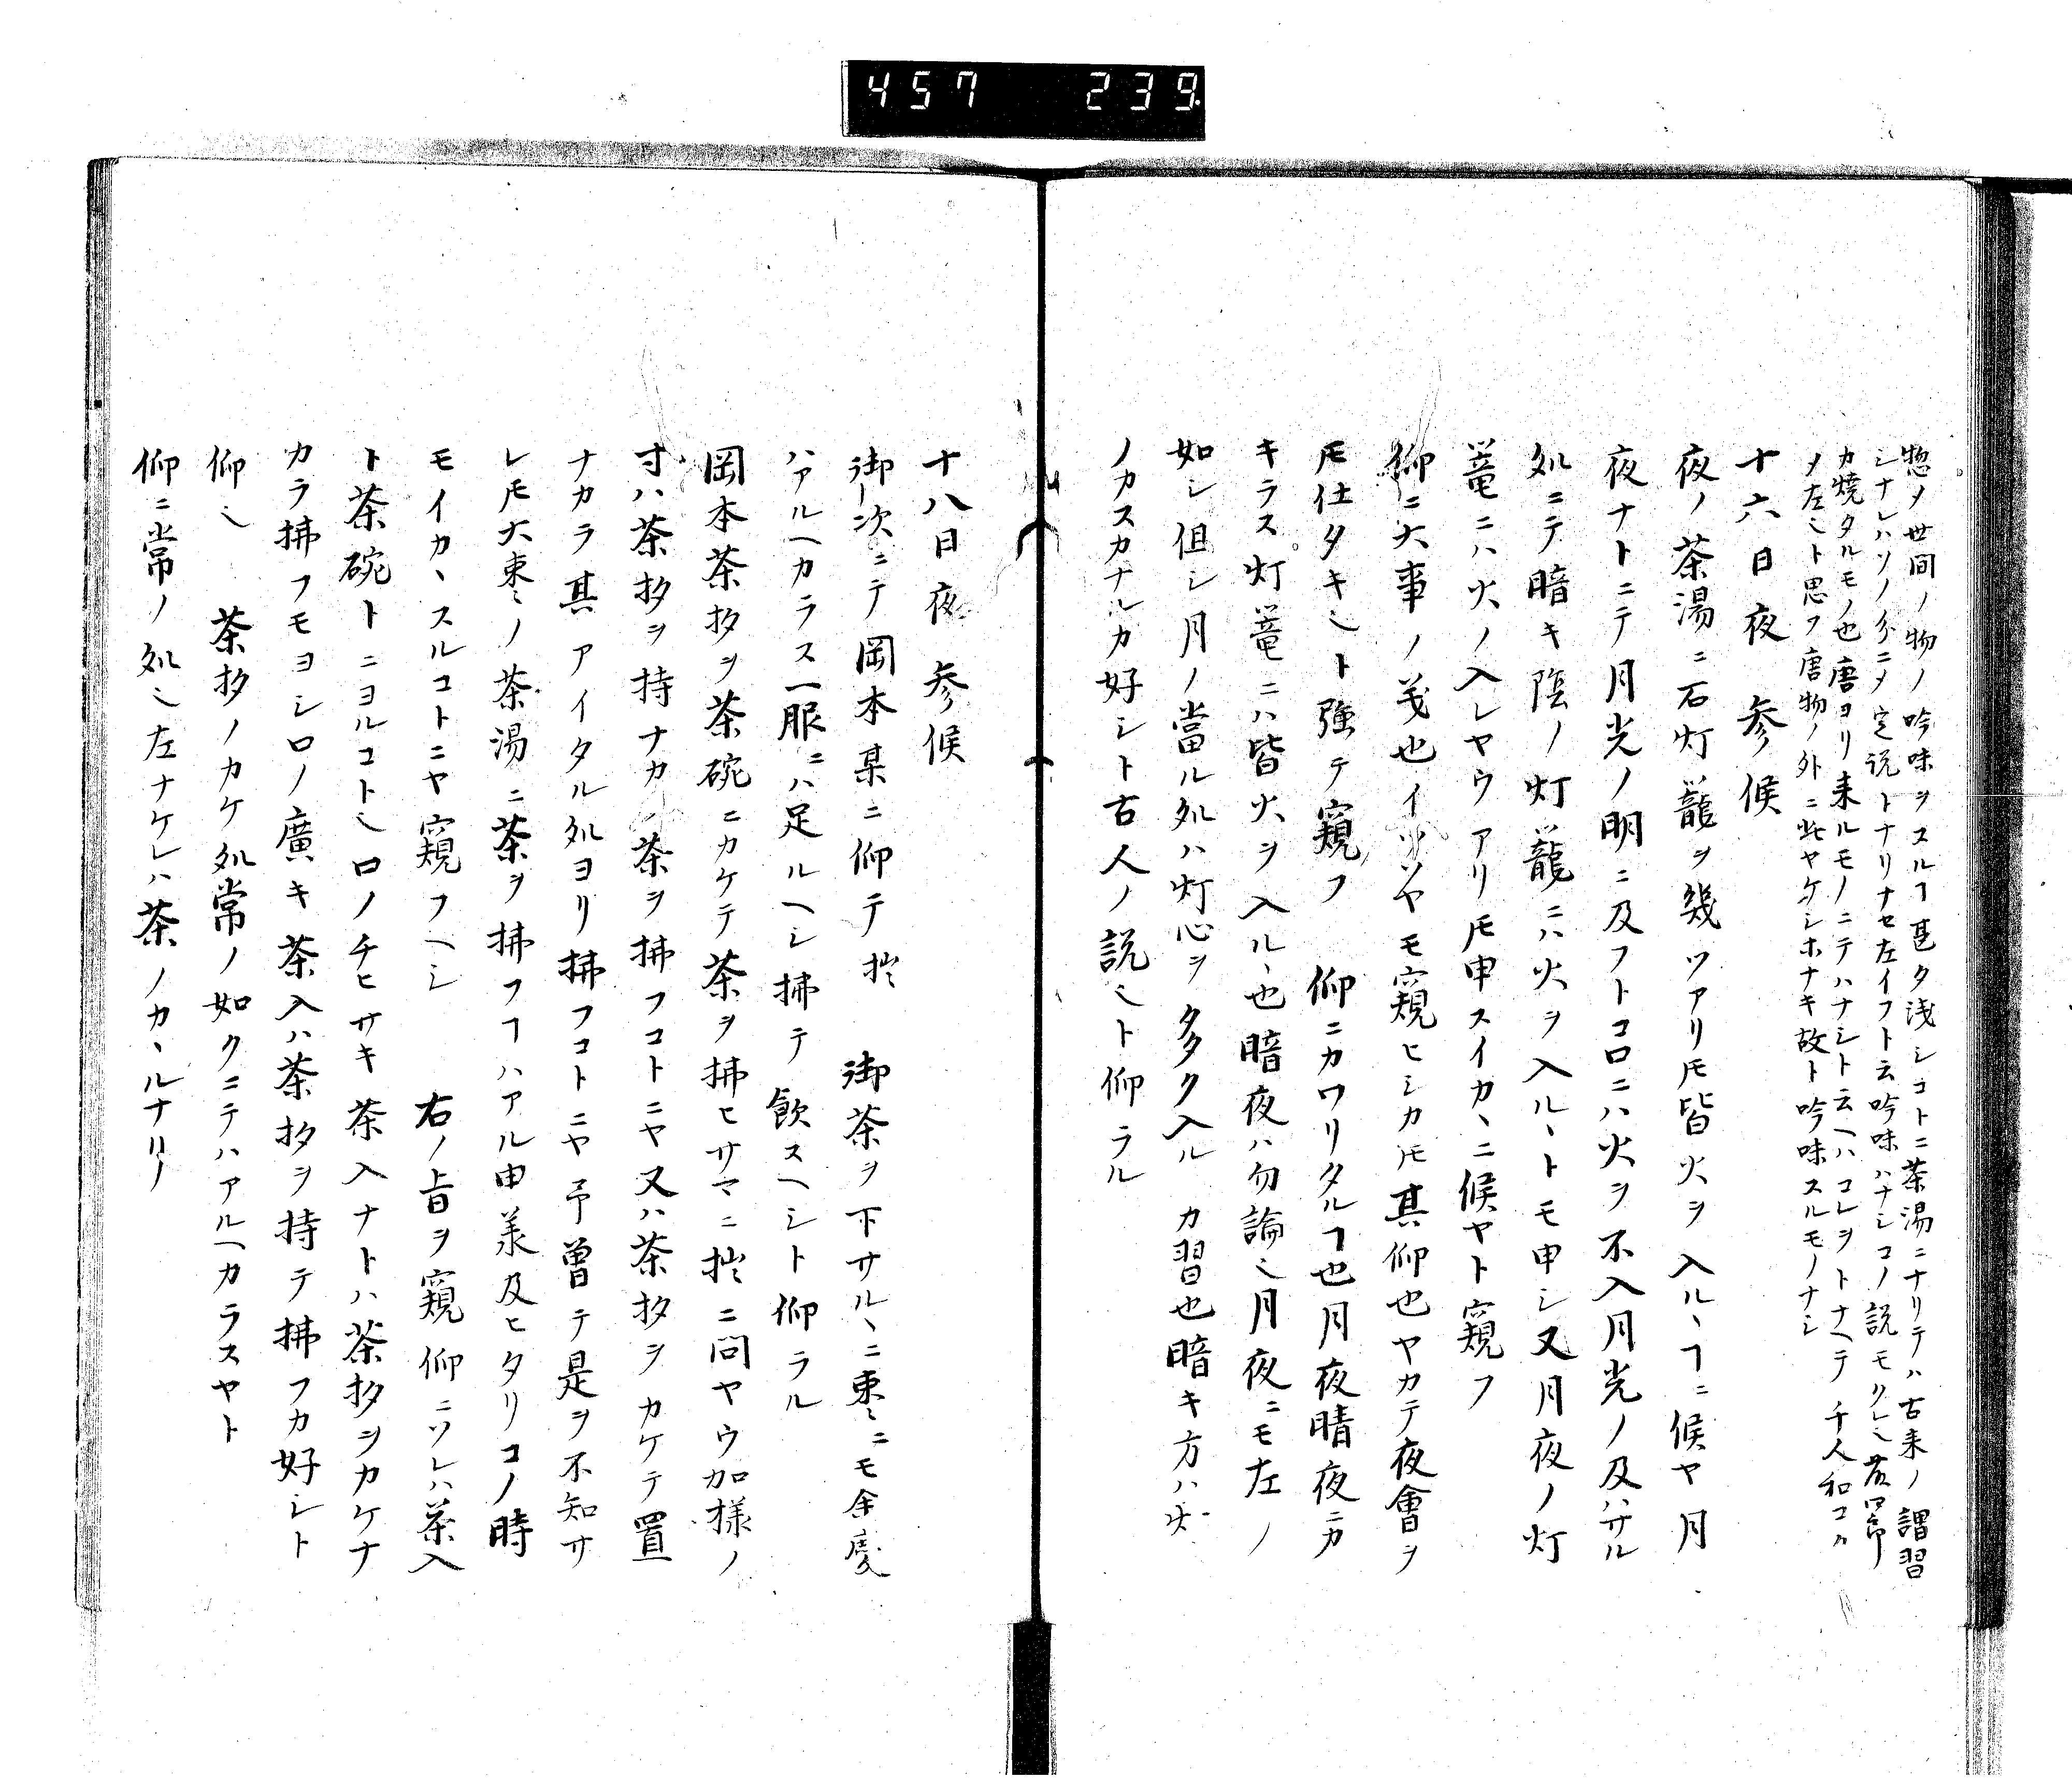 457 239
惣メ世間ノ物ノ吟味ヲスルヿ甚タ浅シコトニ茶湯ニナリテハ古来ノ謂習
シナレハソノ分ニメ定説トナリナセ左イフト云吟味ハナシコノ説モクレ〻
カ焼タルモノ也唐ヨリ来ルモノニテハナシト云ヘハコレヲトナヘテ千人和コハ
ノ左〻ト思フ唐物ノ外ニ此ヤケシホナキ故ト吟味スルモノナシ
十六日夜参候
夜ノ茶湯ニ石灯籠ヲ幾ツアリ𪜈皆火ヲ入ルヽヿニ候ヤ月
夜ナトニテ月光ノ明ニ及フトコロニハ火ヲ不入月光ノ及ハサル
処ニテ暗キ陰ノ灯籠ニハ火ヲ入ルヽトモ申シ又月夜ノ灯
篭ニハ火ノ入レヤウアリ𪜈申スイカヽニ候ヤト窺フ
仰ニ大事ノ義也イツソヤモ窺ヒシカ𪜈其仰也ヤカテ夜會ヲ
𪜈仕タキ〻ト強テ窺フ 仰ニカワリタルヿ也月夜晴夜ニカ
キラス灯篭ニハ皆火ヲ入ルヽ也暗夜ハ勿論〻月夜ニモ左ノ
如シ但シ月ノ當ル処ハ灯心ヲ多ク入ルカ習也暗キ方ハ火
ノカスカナルカ好シト古人ノ説〻ト仰ラル
十八日夜参候
御次ニテ岡本某ニ仰テ拙 御茶ヲ下サルヽニ棗〻ニモ余慶
ハアルヘカラス一服ニハ足ルヘシ拂テ飲スヘシト仰ラル
岡本茶杓ヲ茶碗ニカケテ茶ヲ拂ヒサマニ拙ニ問ヤウ加様ノ
寸ハ茶杓ヲ持ナカラ茶ヲ拂フコトニヤ又ハ茶杓ヲカケテ置
ナカラ其アイタル処ヨリ拂フコトニヤ予曽テ是ヲ不知サ
レ𪜈大棗〻ノ茶湯ニ茶ヲ拂フヿハアル申義及ヒタリコノ時
モイカヽスルコトニヤ窺フヘシ 右ノ旨ヲ窺仰ニソレハ茶入
ト茶碗トニヨルコト〻口ノチヒサキ茶入ナトハ茶杓ヲカケナ
カラ拂フモヨシ口ノ廣キ茶入ハ茶杓ヲ持テ拂フカ好シト
仰〻 茶杓ノカケ処常ノ如クニテハアルヘカラスヤト
仰ニ常ノ処〻左ナケレハ茶ノカヽルナリ